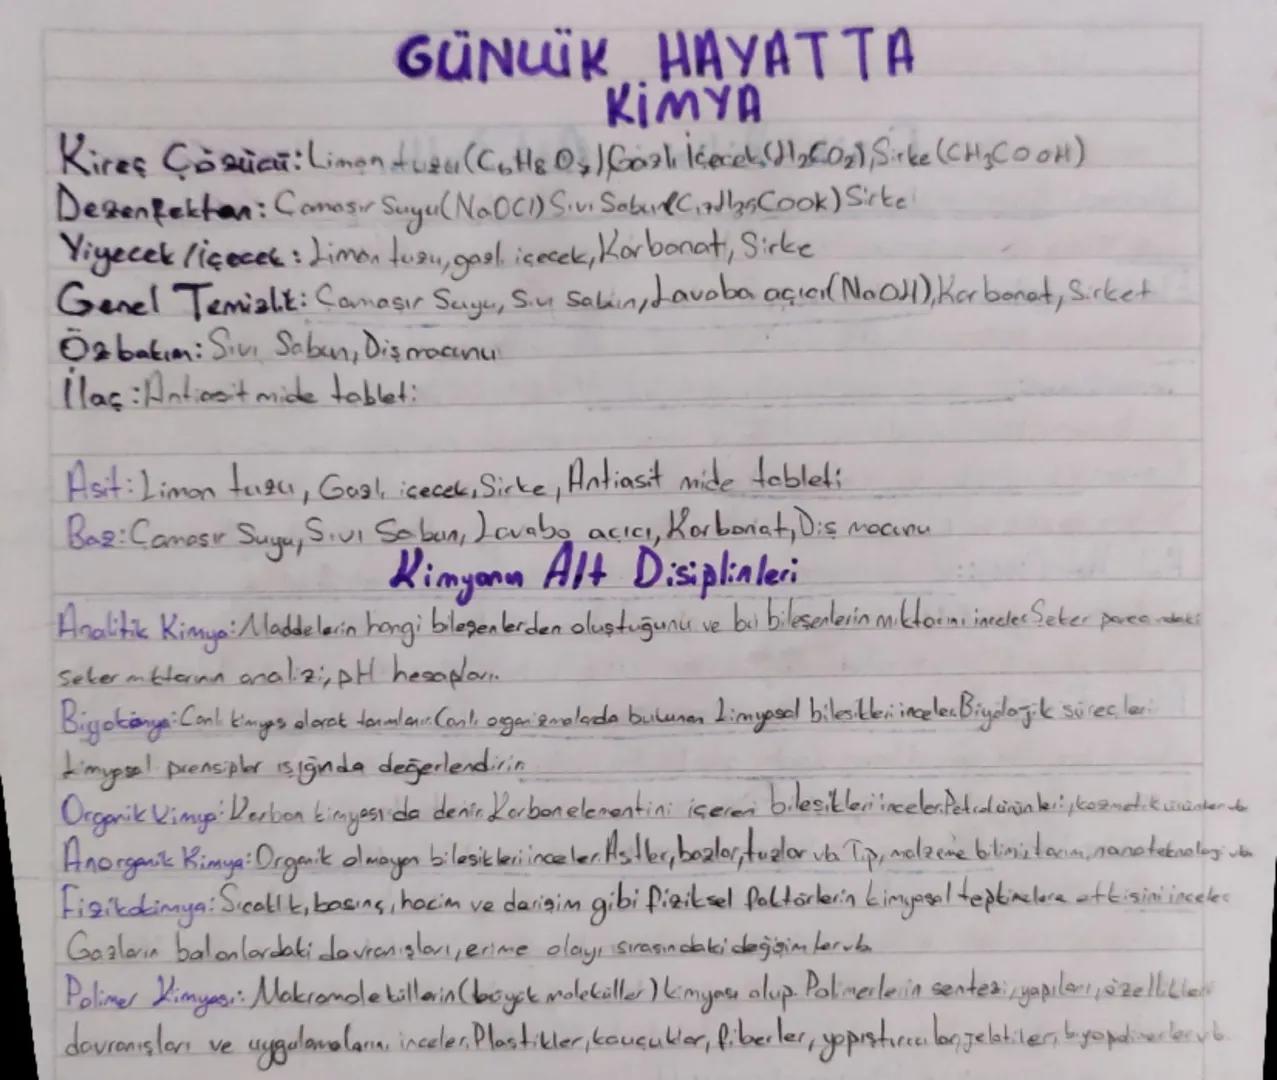 GÜNLÜK HAYATTA
KİMYA
Kireç Çözücü: Limon tuzu (C6H8O7) Gazlı İçecek (H2CO2), Sirke (CH3COOH)
Dezenfektan: Çamaşır Suyu (NaOCl) Sıvı Sabun (C17H35COOK) Sirke
Yiyecek/içecek: Limon tuzu, gazlı içecek, Karbonat, Sirke
Genel Temizlik: Çamaşır Suyu, Sıvı Sabun, Lavabo açıcı (NaOH), Karbonat, Sirket
Özbakım: Sıvı Sabun, Diş macunu
İlaç: Antiasit mide tableti
Asit: Limon tuzu, Gazlı içecek, Sirke, Antiasit mide tableti
Baz: Çamaşır Suyu, Sıvı Sabun, Lavabo açıcı, Karbonat, Diş macunu
Kimyanın Alt Disiplinleri
Analitik Kimya: Maddelerin hangi bileşenlerden oluştuğunu ve bu bileşenlerin miktarını inceler Şeker pancarındaki
şeker miktarının analizi, pH hesapları.
Biyokimya: Canlı kimyası olarak tanımlanır. Canlı organizmalarda bulunan kimyasal bileşikleri inceler. Biyolojik süreçleri
kimyasal prensipler ışığında değerlendirin
Organik Kimya: Karbon kimyası da denir. Karbon elementini içeren bileşikleri inceler. Petrol ürünleri, kozmetik ürünler vb
Anorganik Kimya: Organik olmayan bileşikleri inceler. Asitler, bazlar, tuzlar vb Tıp, malzeme bilimi, tarım, nanoteknoloji vb
Fizikokimya: Sıcaklık, basınç, hacim ve derişim gibi fiziksel faktörlerin kimyasal tepkimelere etkisini inceler
Gazların balonlardaki davranışları, erime olayı sırasındaki değişimler vb
Polimer Kimyası: Makromoleküllerin (büyük moleküller) kimyası olup. Polimerlerin sentezi, yapıları, özellikleri
davranışları ve uygulamalarını inceler. Plastikler, kauçuklar, fiberler, yapıştırıcılar, jelatiler, biyopolimerler vb.